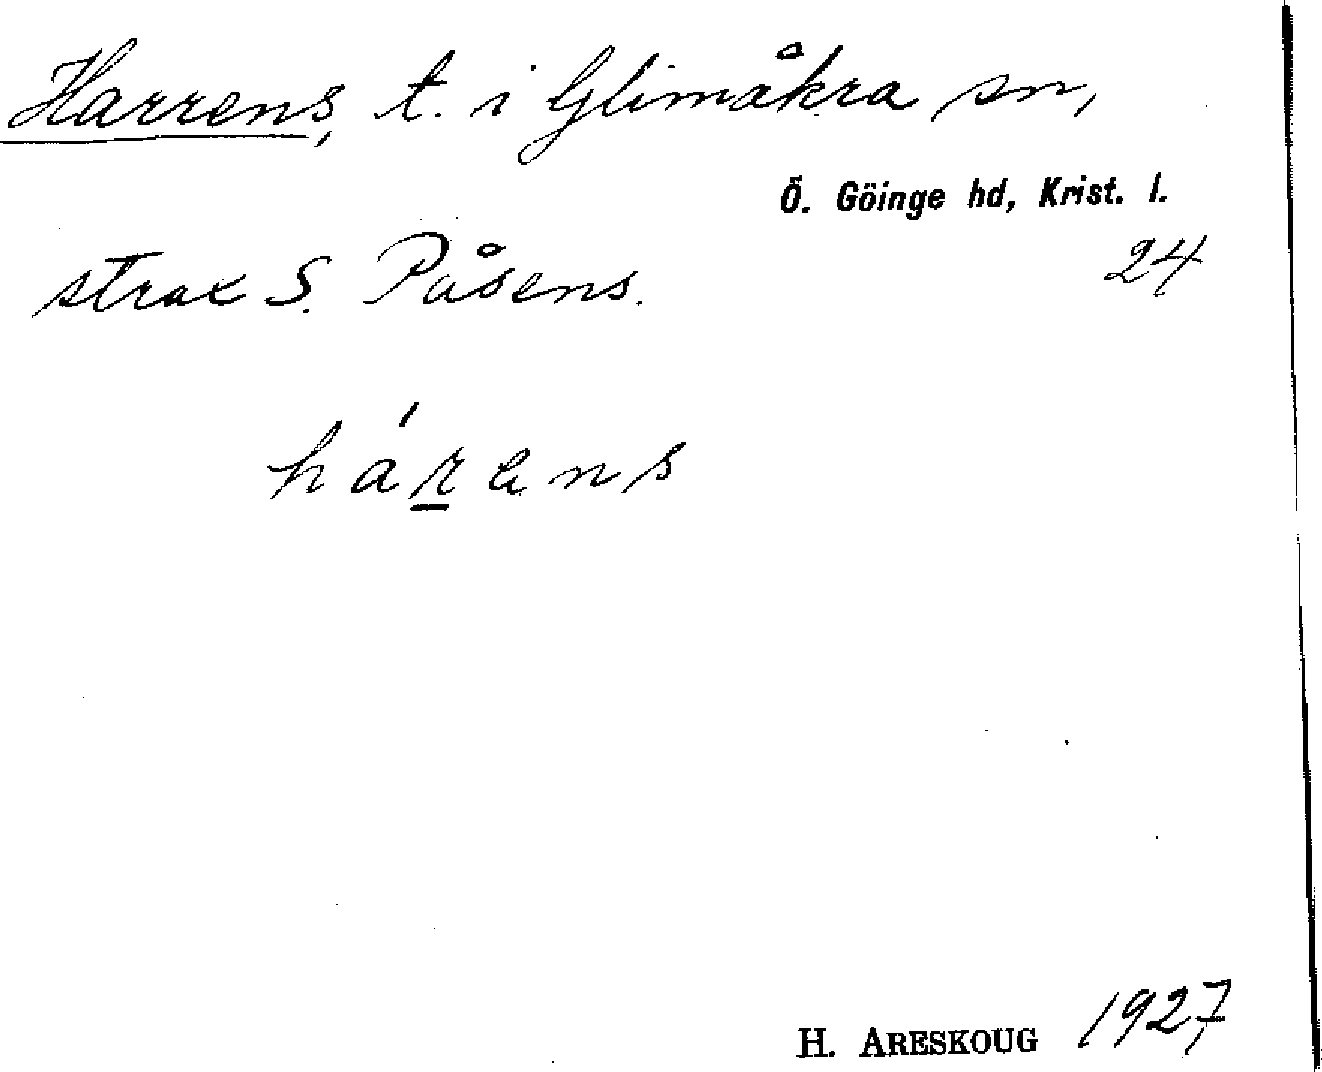 Harrens, t. i Glimåkra sn,
Ö. Göinge hd, Krist. l.
strax S. Påsens.
24
hárens
H. ARESKOUG 1927